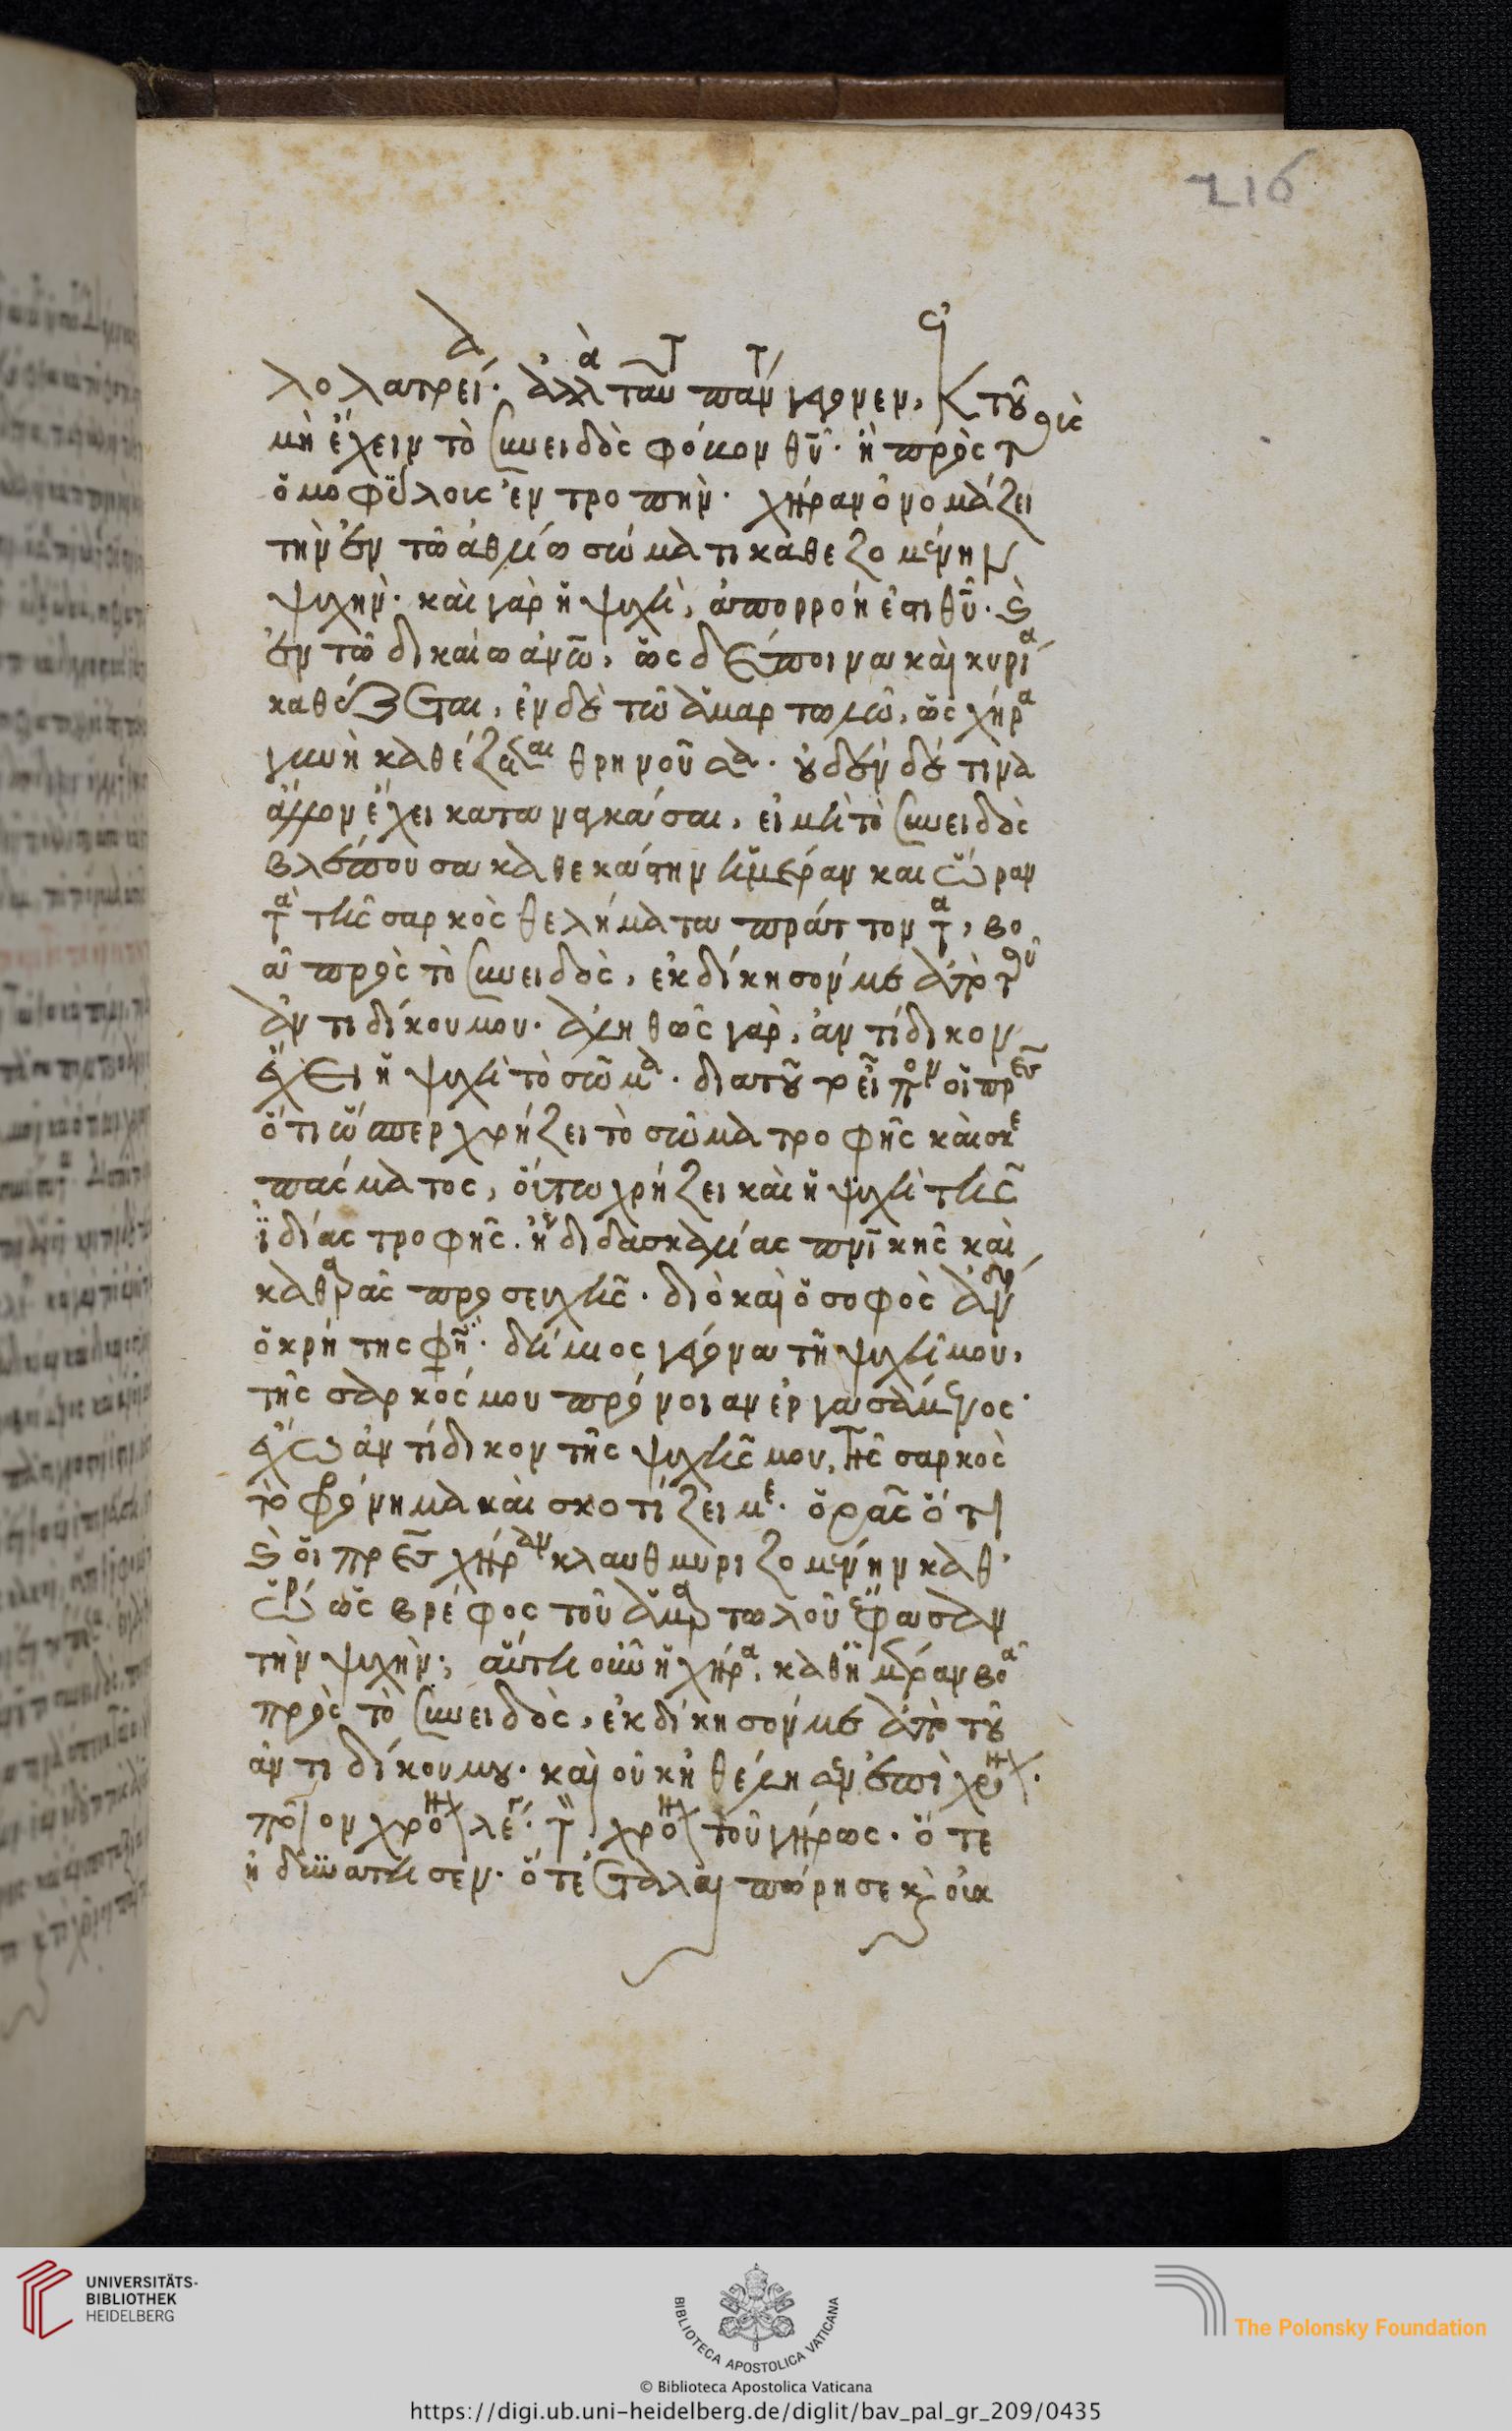 216
λολατρεί. ἀλλὰ ταῦτ πάντ γέγονεν, ἐκ τοῦ
μὴ ἔχειν τὸ συνειδὸς φόβον θῦ. ἢ πρὸς τοὺς
ὁμοφύλοις ἐντροπήν. χήραν ὀνομάζει
τὴν ἐν τῶ ἀθλίω σώματι καθεζομένην
ψυχήν. καὶ γὰρ ἡ ψυχὴ, ἀπορροή ἐστι θῦ. καὶ
ἐν τῶ δικαίω ἀνῶ, ὡς δέσποινα καὶ κυρία
καθέζεται, ἐν δὲ τῶ ἁμαρτωλῶ, ὡς χήρα
γυνὴ καθέζεται θρηνοῦσα. οὐδὲν δέ τινα
ἄλλον ἔχει καταναγκάσαι, εἰ μὴ τὸ συνειδὸς
βλέπουσα καθεκάστην ἡμέραν καὶ ὥραν
τὰ τῆς σαρκὸς θελήματα πράττοντα, βο
ᾶ πρὸς τὸ συνειδὸς, ἐκδίκησόν με ἀπὸ τοῦ
ἀντιδίκου μου. ἀληθῶς γὰρ, ἀντίδικον
ἔχει ἡ ψυχὴ τὸ σῶμα. διὰ τοῦτο εἶπον οἱ πρες
ὅτι ὥσπερ χρήζει τὸ σῶμα τροφῆς καὶ σκε
πάσματος, οὕτω χρήζει καὶ ἡ ψυχὴ τῆς
ἰδίας τροφῆς. ἢ διδασκαλίας πνικῆς καὶ
καθαρᾶς προσευχῆς. διὸ καὶ ὁ σοφὸς ἀνδρ
ὁ κρήτης φη. δήμιος γέγονα τῆ ψυχῆ μου,
τῆς σαρκός μου πρόνοιαν ἐργασάμενος.
ἔχω ἀντίδικον τῆς ψυχῆς μου, τῆς σαρκὸς
τὸ φρόνημα καὶ σκοτίζει με. ὁρᾶς ὅτι
καὶ οἱ πρες χήραν κλαυθμυριζομένην καθ'
ὥρ ὡς βρέφος τοῦ ἁμαρτωλοῦ ἔφασαν
τὴν ψυχήν; αὕτη οὖν ἡ χήρα, καθημέραν βοᾶ
πρὸς τὸ συνειδὸς, ἐκδίκησόν με ἀπὸ τοῦ
ἀντιδίκου μου. καὶ οὐκ ἠθέλησεν ἐπὶ χρο.
ποῖον χρο λέγ. τ, χρο τοῦ γήρως. ὅτε
ἠδυνάτησεν. ὅτε ἐταλαιπώρησε καὶ οὐκ
UNIVERSITÄTS-
BIBLIOTHEK
HEIDELBERG
BIBLIOTECA APOSTOLICA VATICANA
The Polonsky Foundation
© Biblioteca Apostolica Vaticana
https://digi.ub.uni-heidelberg.de/diglit/bav_pal_gr_209/0435